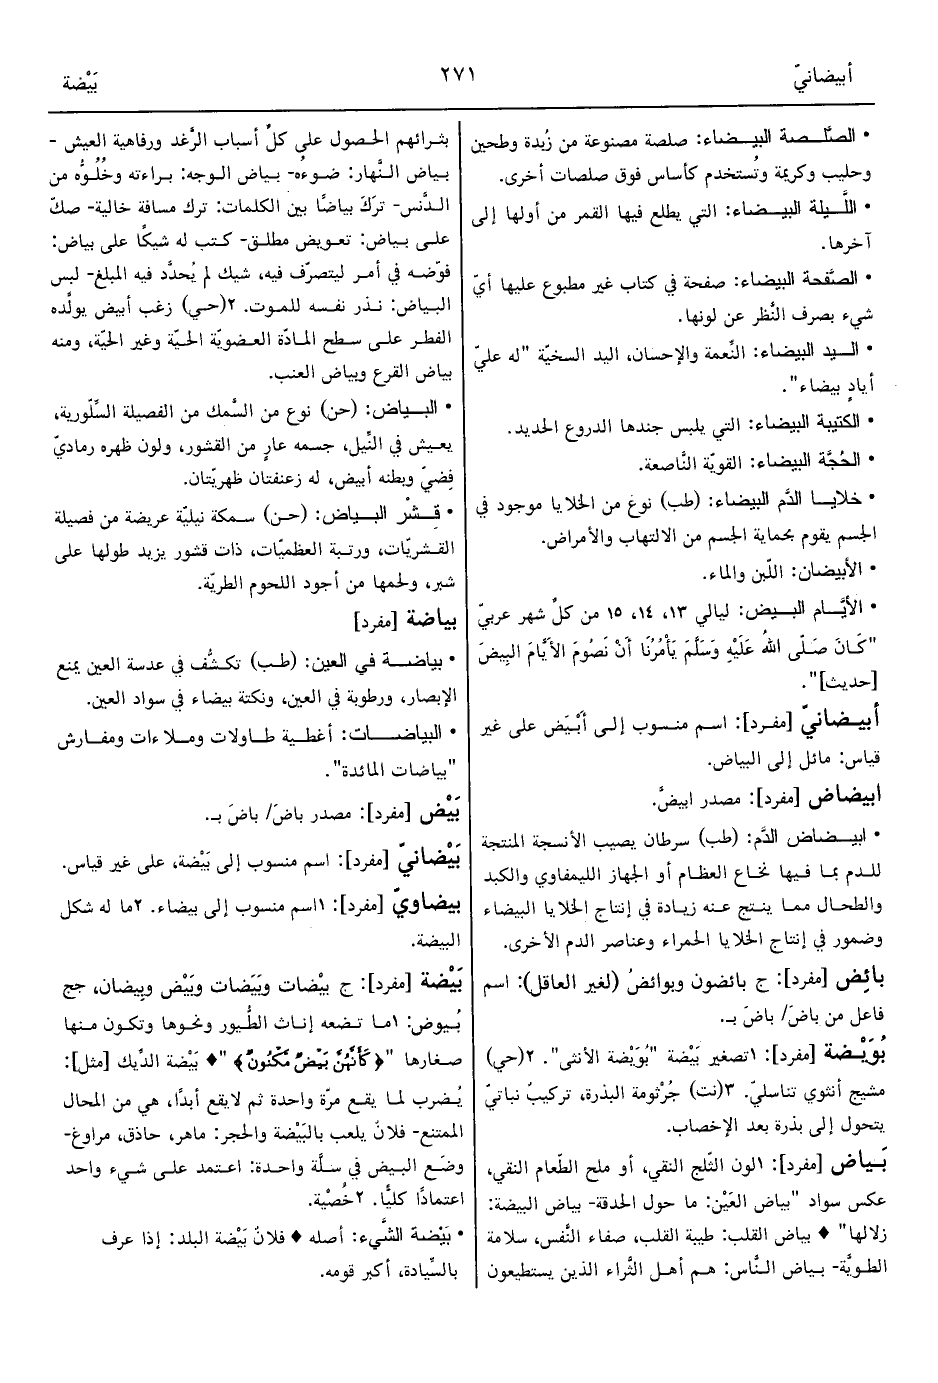 أبيضانيّ
٢٧١
بَيْضة
• الصَّلصة البيضاء: صلصة مصنوعة من زُبدة وطحين
وحليب وكريمة وتُستخدم كأساس فوق صلصات أخرى.
• اللَّيلة البيضاء: التي يطلع فيها القمر من أولها إلى
آخرها.
• الصَّفحة البيضاء: صفحة في كتاب غير مطبوع عليها أيّ
شيء بصرف النَّظر عن لونها.
• اليد البيضاء: النِّعمة والإحسان، اليد السخيّة "له عليّ
أيادٍ بيضاء".
• الكتيبة البيضاء: التي يلبس جندها الدروع الحديد.
• الحُجَّة البيضاء: القويّة النَّاصعة.
• خلايا الدَّم البيضاء: (طب) نوع من الخلايا موجود في
الجسم يقوم بحماية الجسم من الالتهاب والأمراض.
• الأبيضان: اللّبن والماء.
• الأيَّام البيض: ليالي ١٣، ١٤، ١٥ من كلِّ شهر عربيّ
"كَانَ صَلّى اللهُ عَلَيْهِ وَسَلَّمَ يَأْمُرُنَا أَنْ نَصُومَ الأَيَّامَ البِيضَ
[حديث]".
أبيضانيّ [مفرد]: اسم منسوب إلى أَبْيَض على غير
قياس: مائل إلى البياض.
ابيضاض [مفرد]: مصدر ابيضَّ.
• ابيضاض الدَّم: (طب) سرطان يصيب الأنسجة المنتجة
للدم بما فيها نخاع العظام أو الجهاز الليمفاوي والكبد
والطحال مما ينتج عنه زيادة في إنتاج الخلايا البيضاء
وضمور في إنتاج الخلايا الحمراء وعناصر الدم الأخرى.
بائِض [مفرد]: ج بائضون وبوائضُ (لغير العاقل): اسم
فاعل من باضَ/ باضَ بـ.
بُوَيْضة [مفرد]: ١تصغير بَيْضة "بُوَيْضة الأنثى". ٢(حي)
مشيج أنثوي تناسليّ. ٣(نت) جُرْثومة البذرة، تركيبٌ نباتيّ
يتحول إلى بذرة بعد الإخصاب.
بَياض [مفرد]: ١لون الثّلج النقي، أو ملح الطّعام النقي،
عكس سواد "بياض العَيْن: ما حول الحدقة- بياض البيضة:
زلالها" ♦ بياض القلب: طيبة القلب، صفاء النَّفس، سلامة
الطويَّة- بياض النَّاس: هم أهل الثَّراء الذين يستطيعون
بثرائهم الحصول على كلِّ أسباب الرَّغد ورفاهية العيش -
بياض النَّهار: ضوءُه- بياض الوجه: براءته وخُلُوُّه من
الدَّنس- ترَكَ بياضًا بين الكلمات: ترك مسافة خالية- صكّ
على بياض: تعويض مطلق- كتب له شيكًا على بياض:
فوّضه في أمر ليتصرّف فيه، شيك لم يُحدَّد فيه المبلغ- لبس
البياض: نذر نفسه للموت. ٢(حي) زغب أبيض يولّده
الفطر على سطح المادّة العضويّة الحيّة وغير الحيّة، ومنه
بياض القرع وبياض العنب.
• البياض: (حن) نوع من السَّمك من الفصيلة السِّلّورية،
يعيش في النِّيل، جسمه عارٍ من القشور، ولون ظهره رماديّ
فِضيّ وبطنه أبيض، له زعنفتان ظهريّتان.
• قِشْر البياض: (حن) سمكة نيليّة عريضة من فصيلة
القشريّات، ورتبة العظميّات، ذات قشور يزيد طولها على
شبر، ولحمها من أجود اللحوم الطريّة.
بياضة [مفرد]
• بياضة في العين: (طب) تكشُّف في عدسة العين يمنع
الإبصار، ورطوبة في العين، ونكتة بيضاء في سواد العين.
• البياضات: أغطية طاولات وملاءات ومفارش
"بياضات المائدة".
بَيْض [مفرد]: مصدر باضَ/ باضَ بـ.
بَيْضانيّ [مفرد]: اسم منسوب إلى بَيْضة، على غير قياس.
بيضاويّ [مفرد]: ١اسم منسوب إلى بيضاء. ٢ما له شكل
البيضة.
بَيْضة [مفرد]: ج بيْضات وبَيَضات وبَيْض وبِيضان، جج
بُيوض: ١ما تضعه إناث الطُّيور ونحوها وتكون منها
صغارها "﴿كَأَنَّهُنَّ بَيْضٌ مَكْنُونٌ﴾" ♦ بَيْضة الدَّيك [مثل]:
يُضرب لما يقع مرّة واحدة ثم لايقع أبدًا، هي من المحال
الممتنع- فلانٌ يلعب بالبَيْضة والحجر: ماهر، حاذق، مراوغ-
وضَع البيض في سلَّة واحدة: اعتمد على شيء واحد
اعتمادًا كليًّا. ٢خُصْية.
• بَيْضة الشَّيء: أصله ♦ فلانٌ بَيْضة البلد: إذا عرف
بالسِّيادة، أكبر قومه.